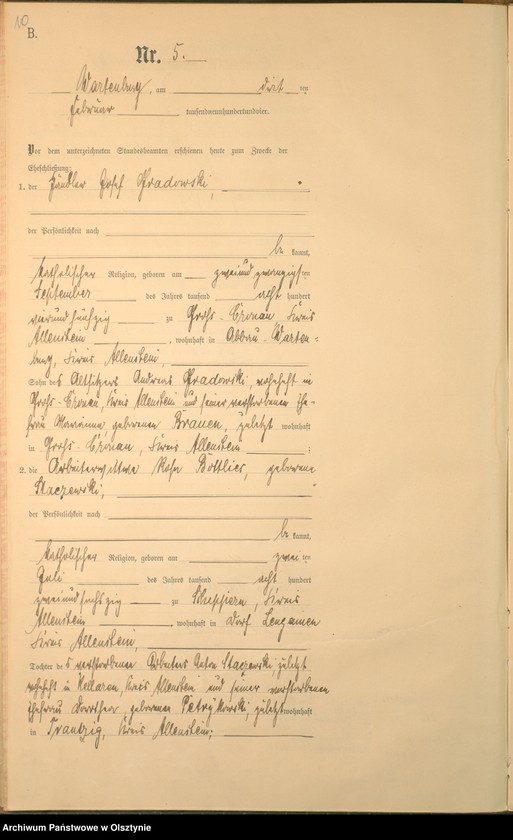 10
B.
Nr. 5.
Wartenburg, am drit ten
Februar tausendneunhundertundvier.
Vor dem unterzeichneten Standesbeamten erschienen heute zum Zwecke der
Eheschließung:
1. der Händler Josef Gradowski,
der Persönlichkeit nach
be kannt,
katholischer Religion, geboren am zweiundzwanzigsten
September des Jahres tausend acht hundert
vierundfünfzig zu Groß-Cronau Kreis
Allenstein, wohnhaft in Abbau-Warten-
burg, Kreis Allenstein,
Sohn des Altsitzers Andreas Gradowski, wohnhaft in
Groß-Cronau, Kreis Allenstein und seiner verstorbenen Ehe-
frau Marianna geborenen, zuletzt wohnhaft
in Groß-Cronau, Kreis Allenstein;
2. die Arbeiterwittwe Rosa, geborene
Staczewski,
der Persönlichkeit nach
be kannt,
katholischer Religion, geboren am zwei ten
Juli des Jahres tausend acht hundert
zweiundsechszig zu, Kreis
Allenstein, wohnhaft in Dorf Lengainen
Kreis Allenstein,
Tochter des verstorbenen Arbeiters Anton Staczewski zuletzt
wohnhaft in, Kreis Allenstein und seiner verstorbenen
Ehefrau Dorothea geborenen Pietrykowski, zuletzt wohnhaft
in, Kreis Allenstein;
Archiwum Państwowe w Olsztynie